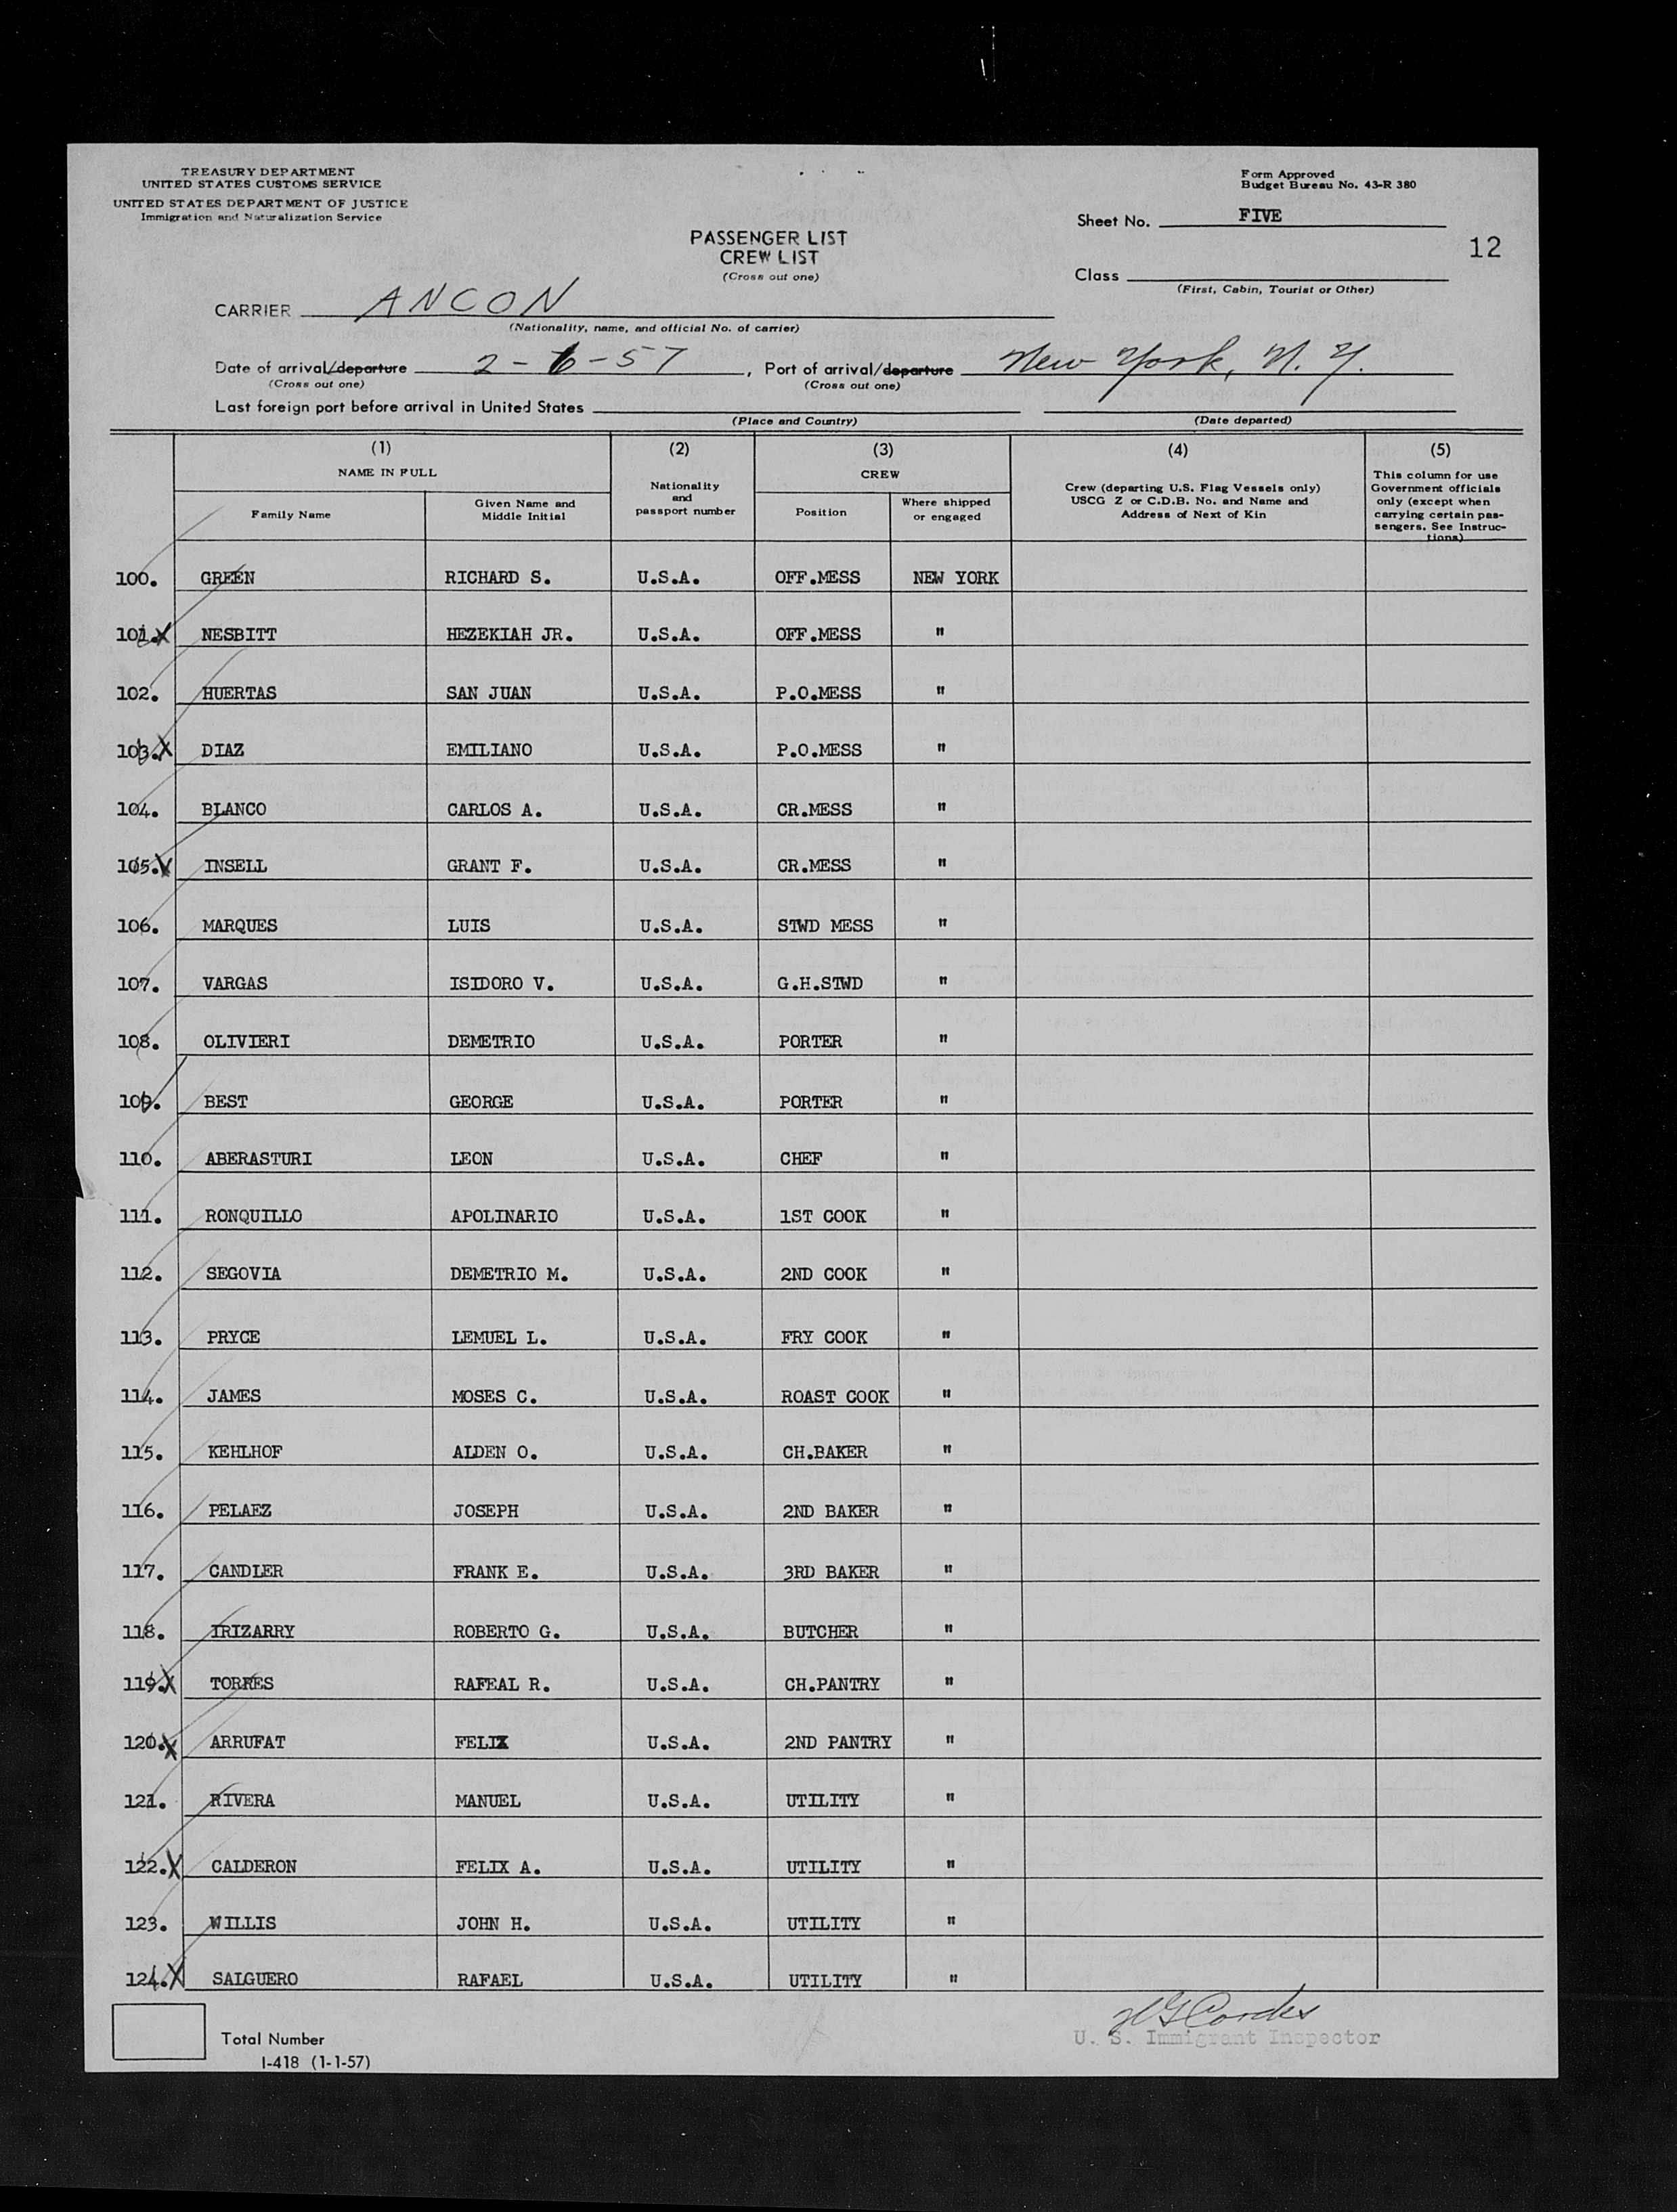 TREASURY DEPARTMENT
UNITED STATES CUSTOMS SERVICE
UNITED STATES DEPARTMENT OF JUSTICE
Immigration and Naturalization Service
Form Approved
Budget Bureau No. 43-R 380
Sheet No. FIVE
12
PASSENGER LIST
CREW LIST
(Cross out one)
Class
(First, Cabin, Tourist or Other)
CARRIER ANCON
(Nationality, name, and official No. of carrier)
Date of arrival/departure 2-6-57, Port of arrival/departure New York, N.Y.
(Cross out one) (Cross out one)
Last foreign port before arrival in United States
(Place and Country) (Date departed)
(1) (2) (3) (4) (5)
NAME IN FULL
Family Name
Given Name and
Middle Initial
Nationality
and
passport number
CREW
Position
Where shipped
or engaged
Crew (departing U.S. Flag Vessels only)
USCG Z or C.D.B. No. and Name and
Address of Next of Kin
This column for use
Government officials
only (except when
carrying certain pas-
sengers. See Instruc-
tions)
100. GREEN RICHARD S. U.S.A. OFF.MESS NEW YORK
101. X NESBITT HEZEKIAH JR. U.S.A. OFF.MESS "
102. HUERTAS SAN JUAN U.S.A. P.O.MESS "
103. X DIAZ EMILIANO U.S.A. P.O.MESS "
104. BLANCO CARLOS A. U.S.A. CR.MESS "
105. X INSELL GRANT F. U.S.A. CR.MESS "
106. MARQUES LUIS U.S.A. STWD MESS "
107. VARGAS ISIDORO V. U.S.A. G.H.STWD "
108. OLIVIERI DEMETRIO U.S.A. PORTER "
109. BEST GEORGE U.S.A. PORTER "
110. ABERASTURI LEON U.S.A. CHEF "
111. RONQUILLO APOLINARIO U.S.A. 1ST COOK "
112. SEGOVIA DEMETRIO M. U.S.A. 2ND COOK "
113. PRYCE LEMUEL L. U.S.A. FRY COOK "
114. JAMES MOSES C. U.S.A. ROAST COOK "
115. KEHLHOF ALDEN O. U.S.A. CH.BAKER "
116. PELAEZ JOSEPH U.S.A. 2ND BAKER "
117. CANDLER FRANK E. U.S.A. 3RD BAKER "
118. IRIZARRY ROBERTO G. U.S.A. BUTCHER "
119. X TORRES RAFEAL R. U.S.A. CH.PANTRY "
120. X ARRUFAT FELIX U.S.A. 2ND PANTRY "
121. RIVERA MANUEL U.S.A. UTILITY "
122. X CALDERON FELIX A. U.S.A. UTILITY "
123. WILLIS JOHN H. U.S.A. UTILITY "
124. X SALGUERO RAFAEL U.S.A. UTILITY "
Total Number
I-418 (1-1-57)
Cordes
U. S. Immigrant Inspector